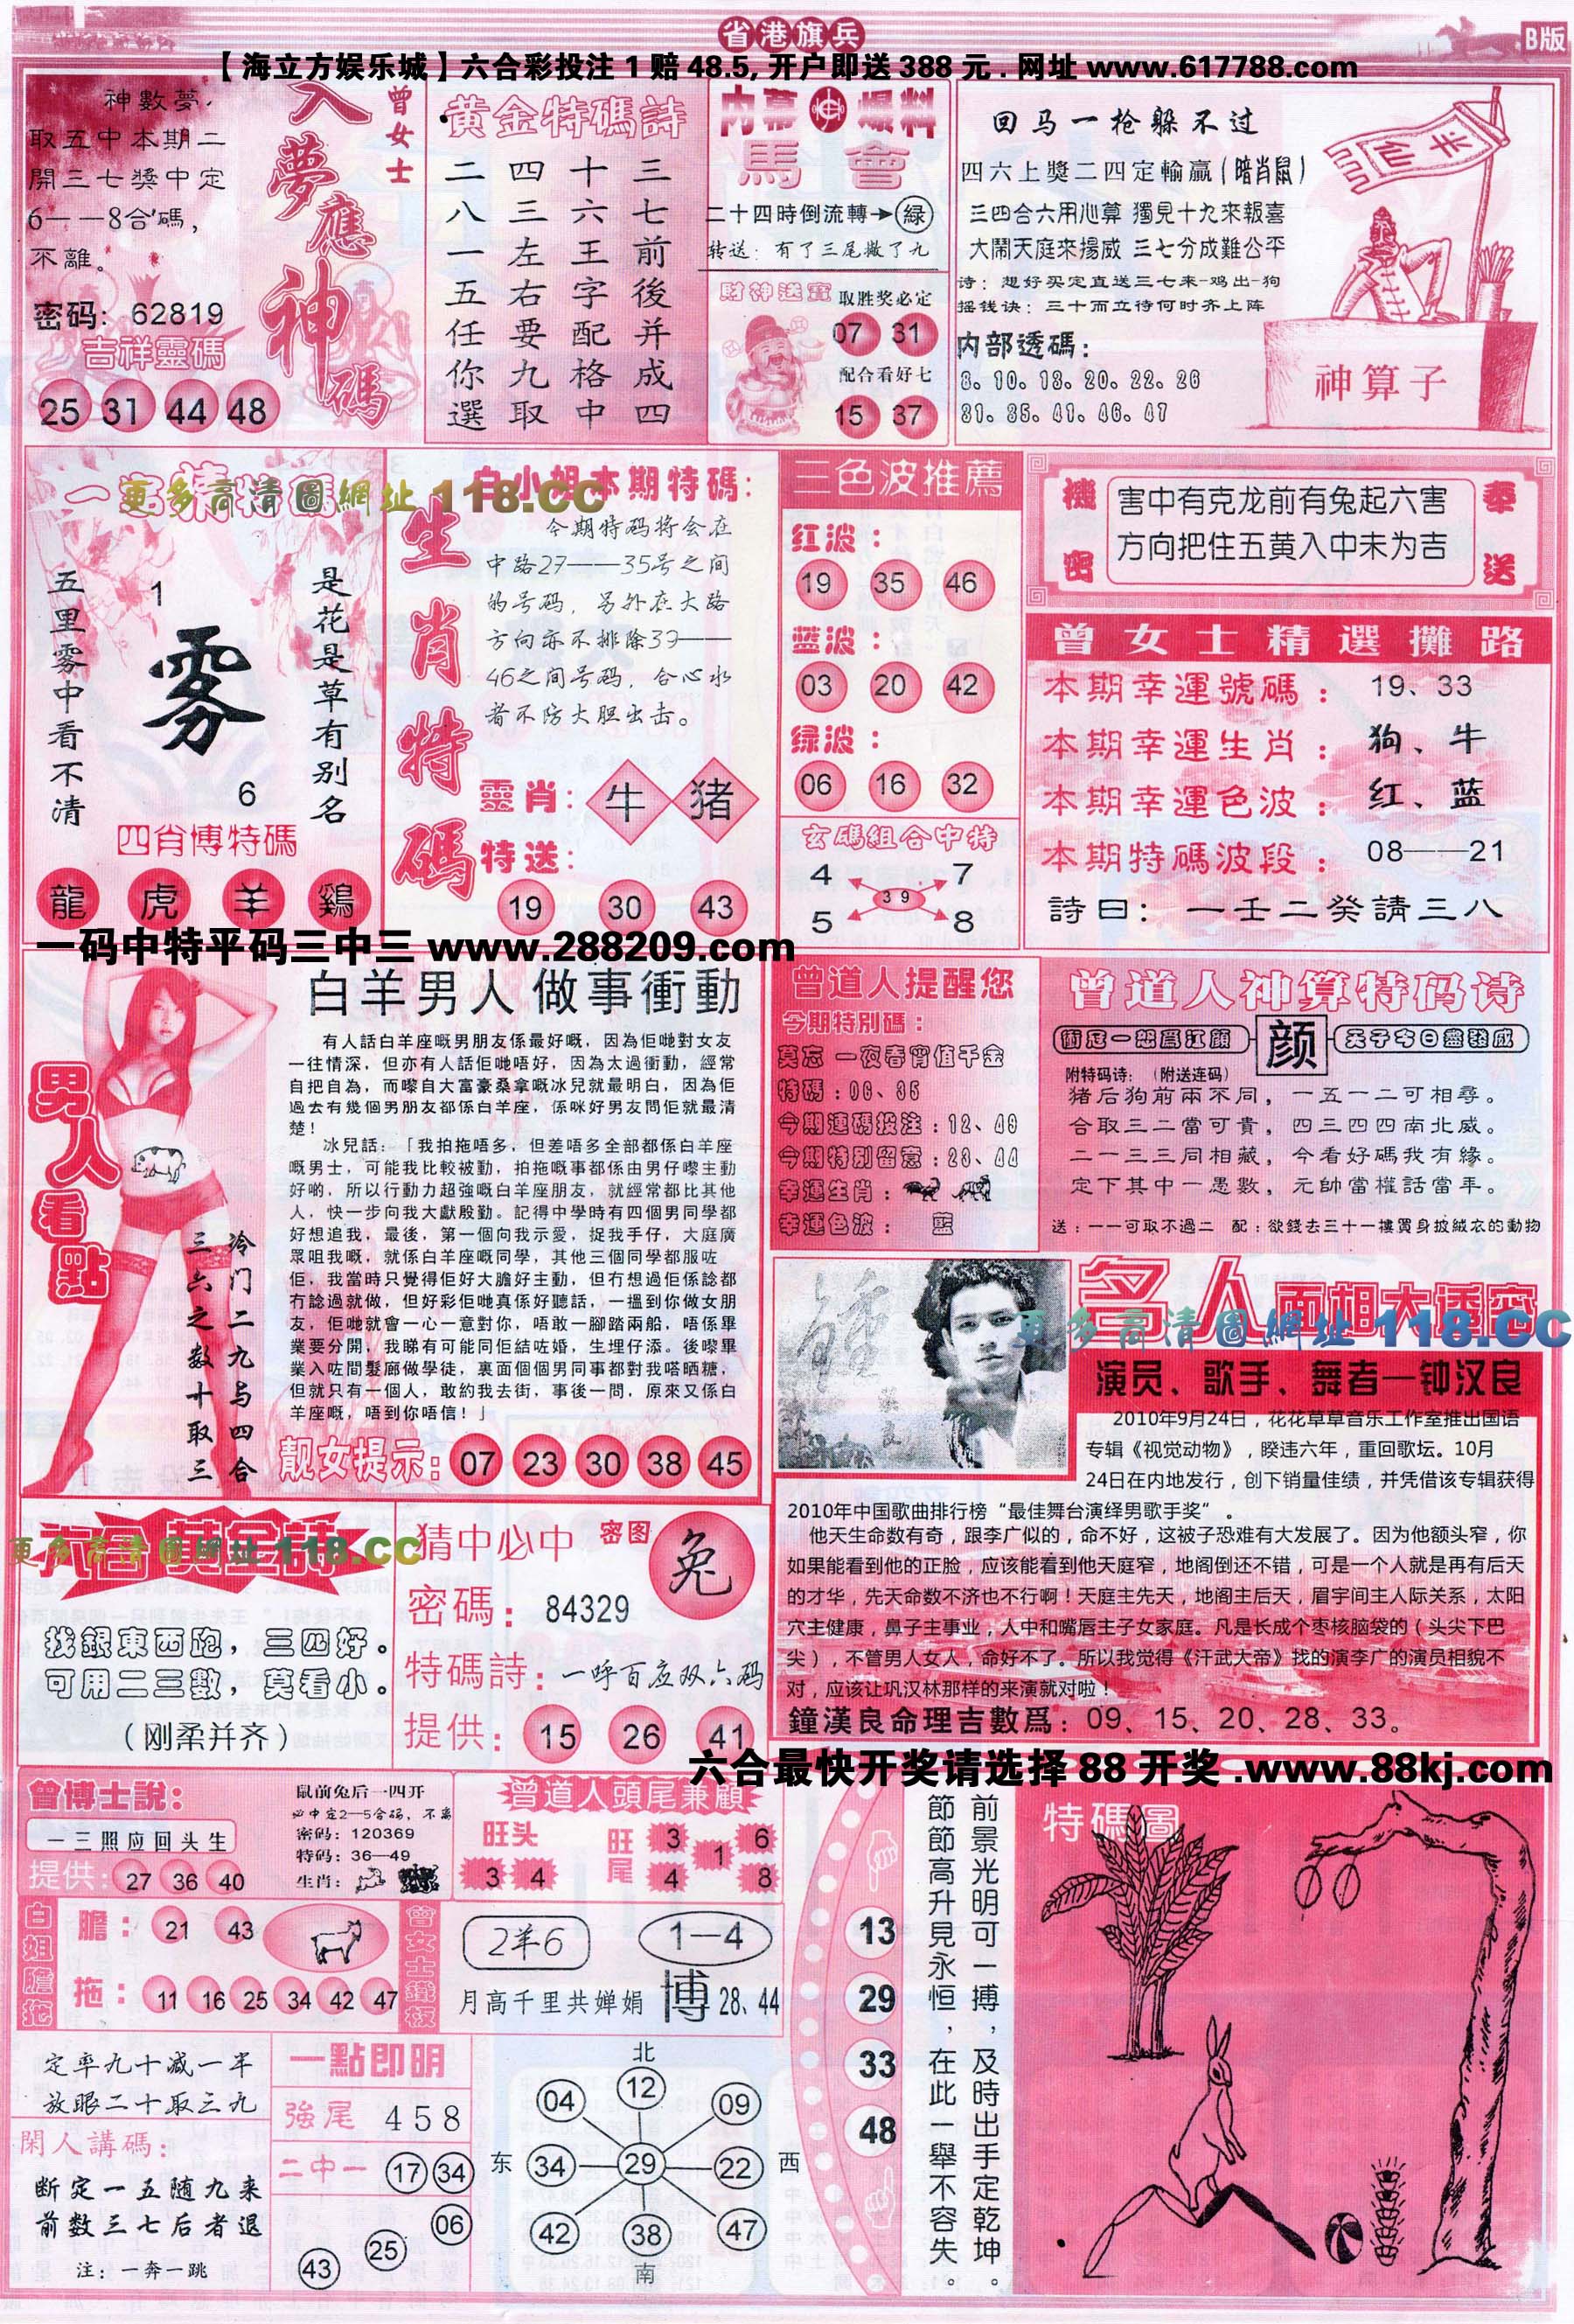 省港旗兵
B版
【海立方娱乐城】六合彩投注 1 赔 48.5, 开户即送 388 元 . 网址 www.617788.com
神數夢，
取五中本期二
開三七獎中定
6——8合碼，
不離。
密码：62819
吉祥靈碼
25 31 44 48
曾女士
入夢應神碼
黃金特碼詩
三七前後并成四
十六王字配格中
四三左右要九取
二八一五任你選
内幕爆料
馬會
二十四時倒流轉→綠
转送：有了三尾撇了九
財神送寶
取胜奖必定
07 31
配合看好七
15 37
回马一枪躲不过
四六上獎二四定輸贏（暗肖鼠）
三四合六用心算 獨見十九來報喜
大鬧天庭來揚威 三七分成難公平
诗：想好买定直送三七来-鸡出-狗
摇钱诀：三十而立待何时齐上阵
内部透碼：
8、10、18、20、22、26
31、35、41、46、47
半仙
神算子
更多高清圖網址 118.CC
是花是草有别名
五里雾中看不清
1
雾
6
四肖博特碼
龍 虎 羊 鷄
生肖特碼
白小姐本期特碼：
今期特码将会在
中路27——35号之间
的号码，另外在大路
方向亦不排除39——
46之间号码，合心水
者不防大胆出击。
靈肖：牛 猪
特送：
19 30 43
三色波推薦
红波：
19 35 46
蓝波：
03 20 42
绿波：
06 16 32
玄碼組合中特
4 7
3 9
5 8
機密
害中有克龙前有兔起六害
方向把住五黄入中未为吉
奉送
曾女士精選攤路
本期幸運號碼：19、33
本期幸運生肖：狗、牛
本期幸運色波：红、蓝
本期特碼波段：08——21
詩曰：一壬二癸請三八
一码中特平码三中三 www.288209.com
男人看點
冷门二九与四合
三六之数廾取三
白羊男人做事衝動
有人話白羊座嘅男朋友係最好嘅，因為佢哋對女友
一往情深，但亦有人話佢哋唔好，因為太過衝動，經常
自把自為，而嚟自大富豪桑拿嘅冰兒就最明白，因為佢
過去有幾個男朋友都係白羊座，係咪好男友問佢就最清
楚！
冰兒話：「我拍拖唔多，但差唔多全部都係白羊座
嘅男士，可能我比較被動，拍拖嘅事都係由男仔嚟主動
好啲，所以行動力超強嘅白羊座朋友，就經常都比其他
人，快一步向我大獻殷勤。記得中學時有四個男同學都
好想追我，最後，第一個向我示愛，捉我手仔，大庭廣
眾咀我嘅，就係白羊座嘅同學，其他三個同學都服咗
佢，我當時只覺得佢好大膽好主動，但冇想過佢係諗都
冇諗過就做，但好彩佢哋真係好聽話，一搵到你做女朋
友，佢哋就會一心一意對你，唔敢一腳踏兩船，唔係畢
業要分開，我睇有可能同佢結咗婚，生埋仔添。後嚟畢
業入咗間髮廊做學徒，裏面個個男同事都對我嗒晒糖，
但就只有一個人，敢約我去街，事後一問，原來又係白
羊座嘅，唔到你唔信！」
靓女提示：07 23 30 38 45
曾道人提醒您
今期特别碼：
莫忘 一夜春宵值千金
特碼：06、35
今期連碼投注：12、49
今期特别留意：23、44
幸運生肖：
幸運色波：藍
曾道人神算特码诗
衝冠一怒爲江顏
颜
天子今日盡發威
附特码诗：（附送连码）
猪后狗前兩不同，一五一二可相尋。
合取三二當可貴，四三四四南北威。
二一三三同相藏，今看好碼我有緣。
定下其中一愚數，元帥當權話當年。
送：一一可取不過二 配：欲錢去三十一樓買身披絨衣的動物
名人面相大透穿
更多高清圖網址 118.CC
演员、歌手、舞者—钟汉良
2010年9月24日，花花草草音乐工作室推出国语
专辑《视觉动物》，睽违六年，重回歌坛。10月
24日在内地发行，创下销量佳绩，并凭借该专辑获得
2010年中国歌曲排行榜“最佳舞台演绎男歌手奖”。
他天生命数有奇，跟李广似的，命不好，这被子恐难有大发展了。因为他额头窄，你
如果能看到他的正脸，应该能看到他天庭窄，地阁倒还不错，可是一个人就是再有后天
的才华，先天命数不济也不行啊！天庭主先天，地阁主后天，眉宇间主人际关系，太阳
穴主健康，鼻子主事业，人中和嘴唇主子女家庭。凡是长成个枣核脑袋的（头尖下巴
尖），不管男人女人，命好不了。所以我觉得《汗武大帝》找的演李广的演员相貌不
对，应该让巩汉林那样的来演就对啦！
鐘漢良命理吉數爲：09、15、20、28、33。
六合黃金詩
更多高清圖網址 118.CC
找銀東西跑，三四好。
可用二三數，莫看小。
（刚柔并齐）
猜中必中 密图 兔
密碼：84329
特碼詩：一呼百应双六码
提供：15 26 41
六合最快开奖请选择 88 开奖 .www.88kj.com
曾博士說：
一三照应回头生
提供：27 36 40
鼠前兔后一四开
必中定2—5合码，不离
密码：120369
特码：36—49
生肖：
曾道人頭尾兼顧
旺头
3 4
旺尾
3 6
1
4 8
白姐膽拖
膽：21 43
拖：11 16 25 34 42 47
曾女士鐵板
2羊6
1—4
月高千里共婵娟 博 28、44
定率九十减一半
放眼二十取三九
閑人講碼：
断定一五随九来
前数三七后者退
注：一奔一跳
一點即明
強尾 4 5 8
二中一 17 34
06
25
43
北
04 12 09
东 34 29 22 西
42 38 47
南
13
29
33
48
前景光明可一搏，及時出手定乾坤。
節節高升見永恒，在此一舉不容失。
特碼圖